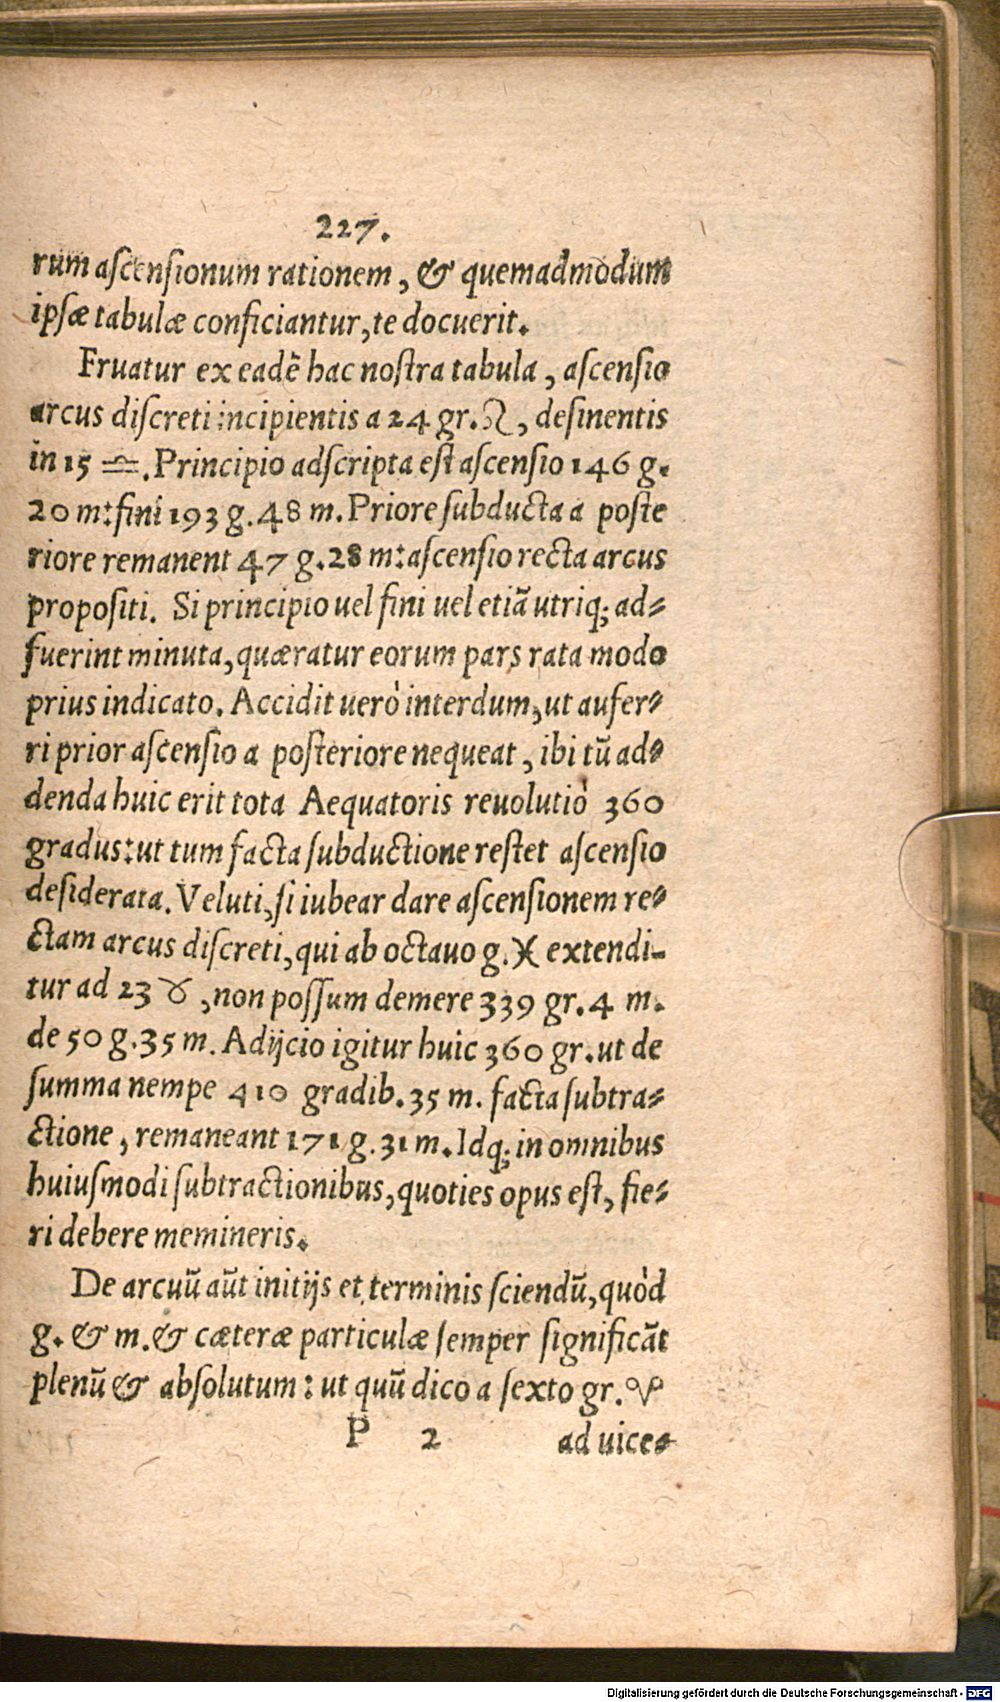 227.
rum ascensionum rationem, & quemadmodum
ipsæ tabulæ conficiantur, te docuerit.
Fruatur ex eadē hac nostra tabula, ascensio
arcus discreti incipientis a 24 gr. ♌, desinentis
in 15 ♎. Principio adscripta est ascensio 146 g.
20 m: fini 193 g. 48 m. Priore subducta a poste
riore remanent 47 g. 28 m: ascensio recta arcus
propositi. Si principio uel fini uel etiã utriq; ad-
fuerint minuta, quæratur eorum pars rata modo
prius indicato. Accidit uerò interdum, ut aufer-
ri prior ascensio a posteriore nequeat, ibi tũ ad-
denda huic erit tota Aequatoris reuolutiò 360
gradus: ut tum facta subductione restet ascensio
desiderata. Veluti, si iubear dare ascensionem re-
ctam arcus discreti, qui ab octauo g. ♓ extendi-
tur ad 23 ♉, non possum demere 339 gr. 4 m.
de 50 g. 35 m. Adijcio igitur huic 360 gr. ut de
summa nempe 410 gradib. 35 m. facta subtra-
ctione, remaneant 171 g. 31 m. Idq; in omnibus
huiusmodi subtractionibus, quoties opus est, fie-
ri debere memineris.
De arcuũ aũt initijs et terminis sciendũ, quòd
g. & m. & cæteræ particulæ semper significãt
plenũ & absolutum: ut quũ dico a sexto gr. ♈
P 2 ad uice-
Digitalisierung gefördert durch die Deutsche Forschungsgemeinschaft - DFG